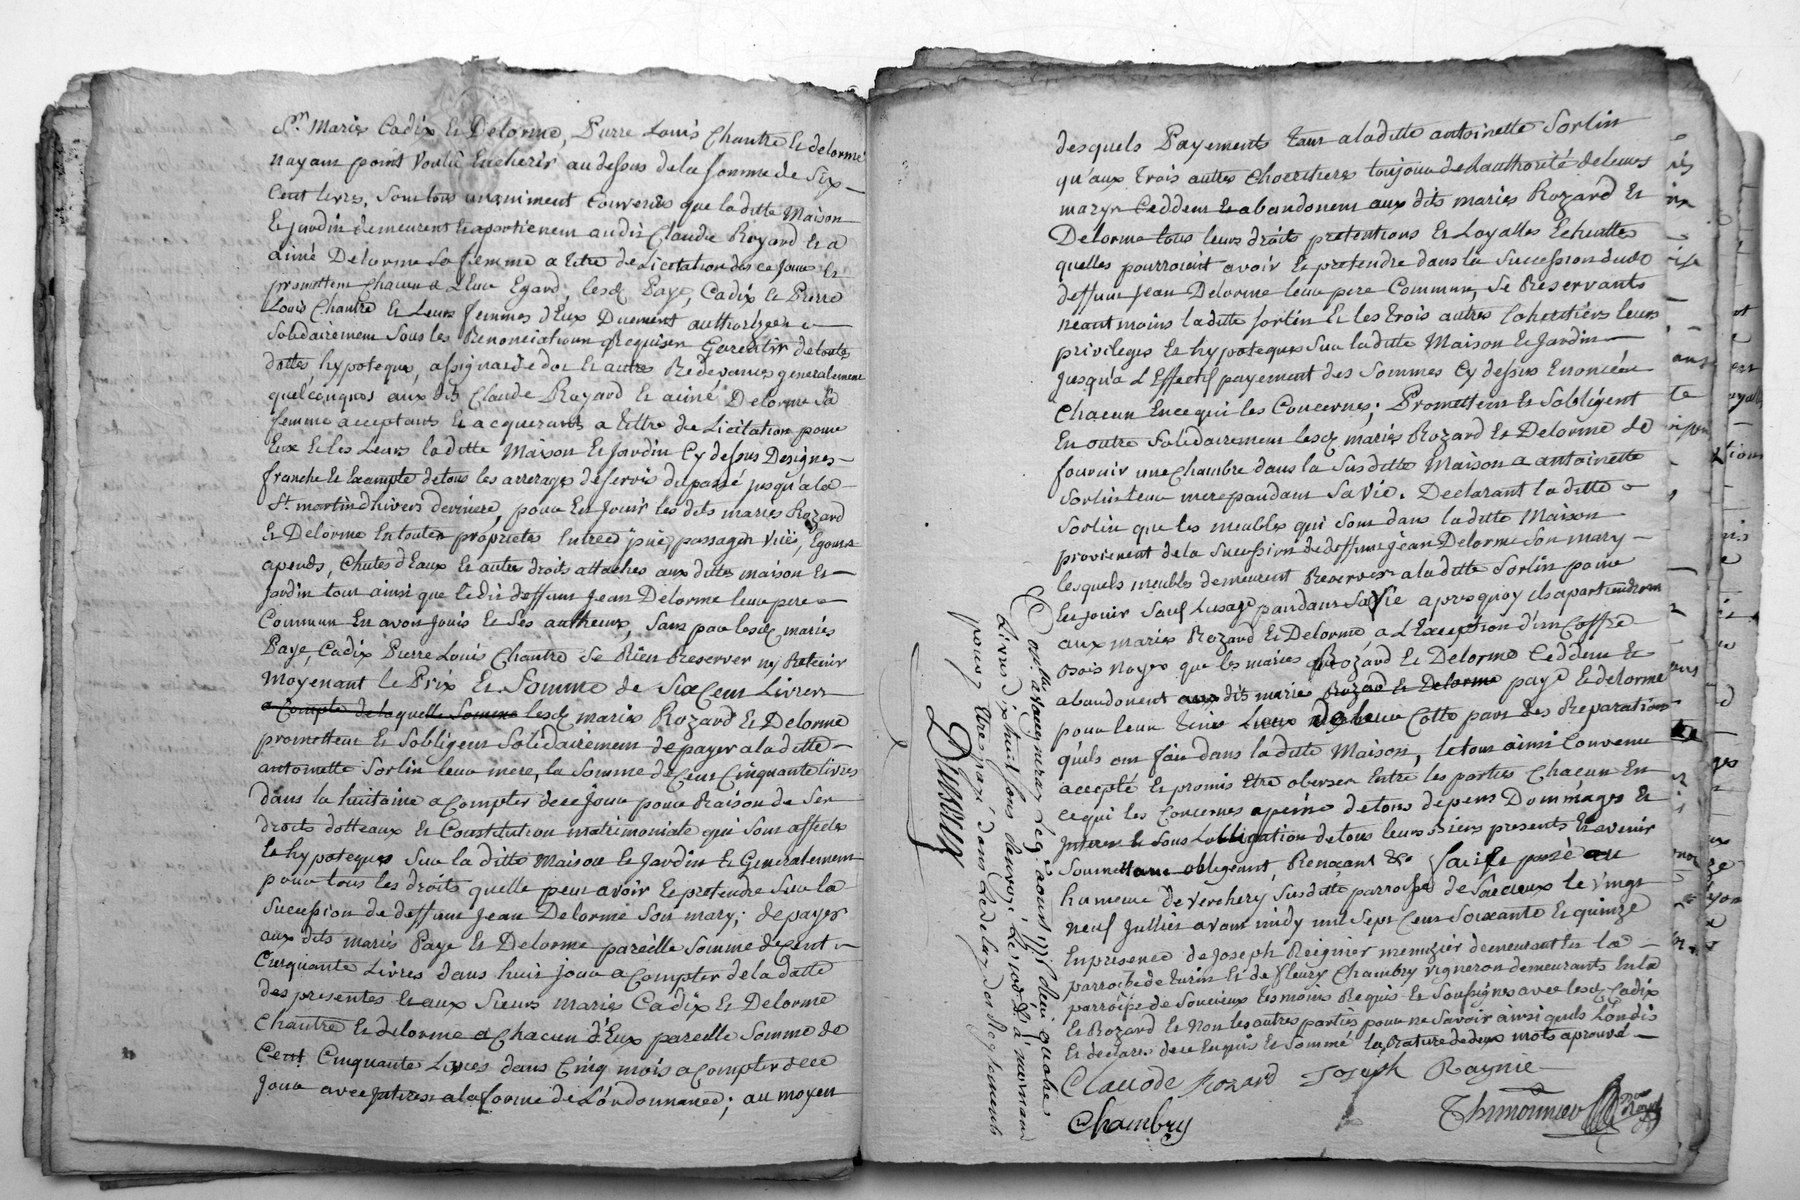 Srs. Mariés Cadix Et Delorme, Pierre Louis Chantre Et delorme
nayant point voulu Encherir au dessus de la somme de Six
Cent livres, sont tous unaniment Convenus que ladite Maison
Et jardin demeurent Et apartienent audit Claude Rozard Et a
aimé Delorme Sa femme a titre de Licitation des ce jour Et
promettent chacun a Leur Egard, lesd. Paye, Cadix Et Pierre
Louis Chantre Et Leurs femmes d'Eux Duement authorizées
Solidairement Sous les Renonciations Requises Garentir de toute
dotte, hypoteque, assignat de dot Et autres Redevances generalement
quelconques aux dts Claude Rozard Et aimé Delorme Sa
femme acceptants Et acquerants a tittre de Licitation pour
Eux Et les Leurs ladite Maison Et jardin Cy dessus Designes
franche Et Exampte de tous les arrerages de servis du passé jusqu'a la
St. martin d'hivers derniere, pour En Jouir les dits mariés Rozard
Et Delorme En toutes proprietés Entrées jssue, passages vües, Egouts
apends, Chutes d'Eaux Et autres droits attachés aux dittes maison Et
jardin tout ainsi que ledit deffunt Jean Delorme leur pere
Commun En avoit jouis Et Ses autheurs, Sans par lesd. mariés
Paye, Cadix Pierre Louis Chantre Se Rien Reserver ny Retenir
Moyenant le Prix Et Somme de Six Cent Livres
a Compte de laquelle Somme lesd. mariés Rozard Et Delorme
promettent Et Sobligent Solidairement de payer a la ditte
antoinette Sorlin leur mere, la Somme de Cent Cinquante livres
dans la huitaine a Compter de ce jour pour Raison de Ses
droits dottaux Et Constitution matrimoniale qui Sont affectés
Et hypoteques Sur la ditte Maison Et Jardin Et Generalement
pour tous les droits quelle peut avoir Et pretendre Sur la
Sucession de deffunt Jean Delorme Son mary; de payer
aux dits mariés Paye Et Delorme pareille Somme de Cent
Cinquante Livres dans huit jour a Compter de la datte
des presentes Et aux Sieurs mariés Cadix Et Delorme
Chantre Et delorme a Chacun d'Eux pareille Somme de
Cent Cinquante Livres dans Cinq mois a Compter de ce
Jour avec Interest a la forme de L'ordonnance; au moyen
desquels Payements tant a la ditte antoinette Sorlin
qu'aux trois autres Choeritiers toujour de Lauthorité de leurs
marys Ceddent Et abandonent aux dits mariés Rozard Et
Delorme tous leurs droits pretentions Et Loyalles Echuttes
quelles pourroient avoir Et pretendre dans la Succession dud.
deffunt Jean Delorme leur pere Commun, Se Reservants
neantmoins ladite Sorlin Et les trois autres Coheritiers leurs
privileges Et hypoteques Sur ladite Maison Et Jardin
Jusqu'a L'Effectif payement des Sommes Cy dessus Enoncées
Chacun En ce qui les Concernes; Promettent Et Sobligent
En outre Solidairement lesd. mariés Rozard Et Delorme de
fournir une Chambre dans la Susditte Maison a antoinette
Sorlin leur mere pandant Sa Vie. Declarant la ditte
Sorlin que les meubles qui Sont dans la ditte Maison
provienent de la Sucession de deffunt Jean Delorme Son mary
lesquels meubles demeurent Reservés a la ditte Sorlin pour
En jouir Sauf Lusage pandant Sa Vie apres quoy ils apartiendront
aux mariés Rozard Et Delorme, a L'Exception d'un Coffre
Bois noyer que les mariés Rozard Et Delorme Ceddent Et
abandonent aux dits mariés Rozard Et Delorme paye Et delorme
pour leur Tenir Lieux de leur Cotte part des Reparations
qu'ils ont fait dans la ditte Maison, le tout ainsi Convenu
accepté Et promis Etre observer Entre les parties Chacun En
ce qui les Concernes a peine de tous depens Dommages Et
Interest Et Sous Lobligation de tous leurs biens presents Et avenir
Soumettant obligeant, Renonçant &c. fait Et passé au
hameau de Verchery Susditte parroisse de Soucieux le vingt
neuf Juillier avant midy mil Sept Cent Soixante Et quinze
En presence de Joseph Reignier menuzier demeurant En la
parroisse de Turin Et de fleury Chambry vigneron demeurants En la
parroisse de Soucieux temoins Requis Et Soussignés avec lesd. Cadix
Et Rozard Et Non les autres parties pour ne Savoir ainsi quils Londis
Et declaré de ce Enquis Et Sommé la Rature de deux mots aprouvé
Claude Rozard Joseph Raynie
Chambry
Thimonnier Nore Royal
Livres dixhuit sols